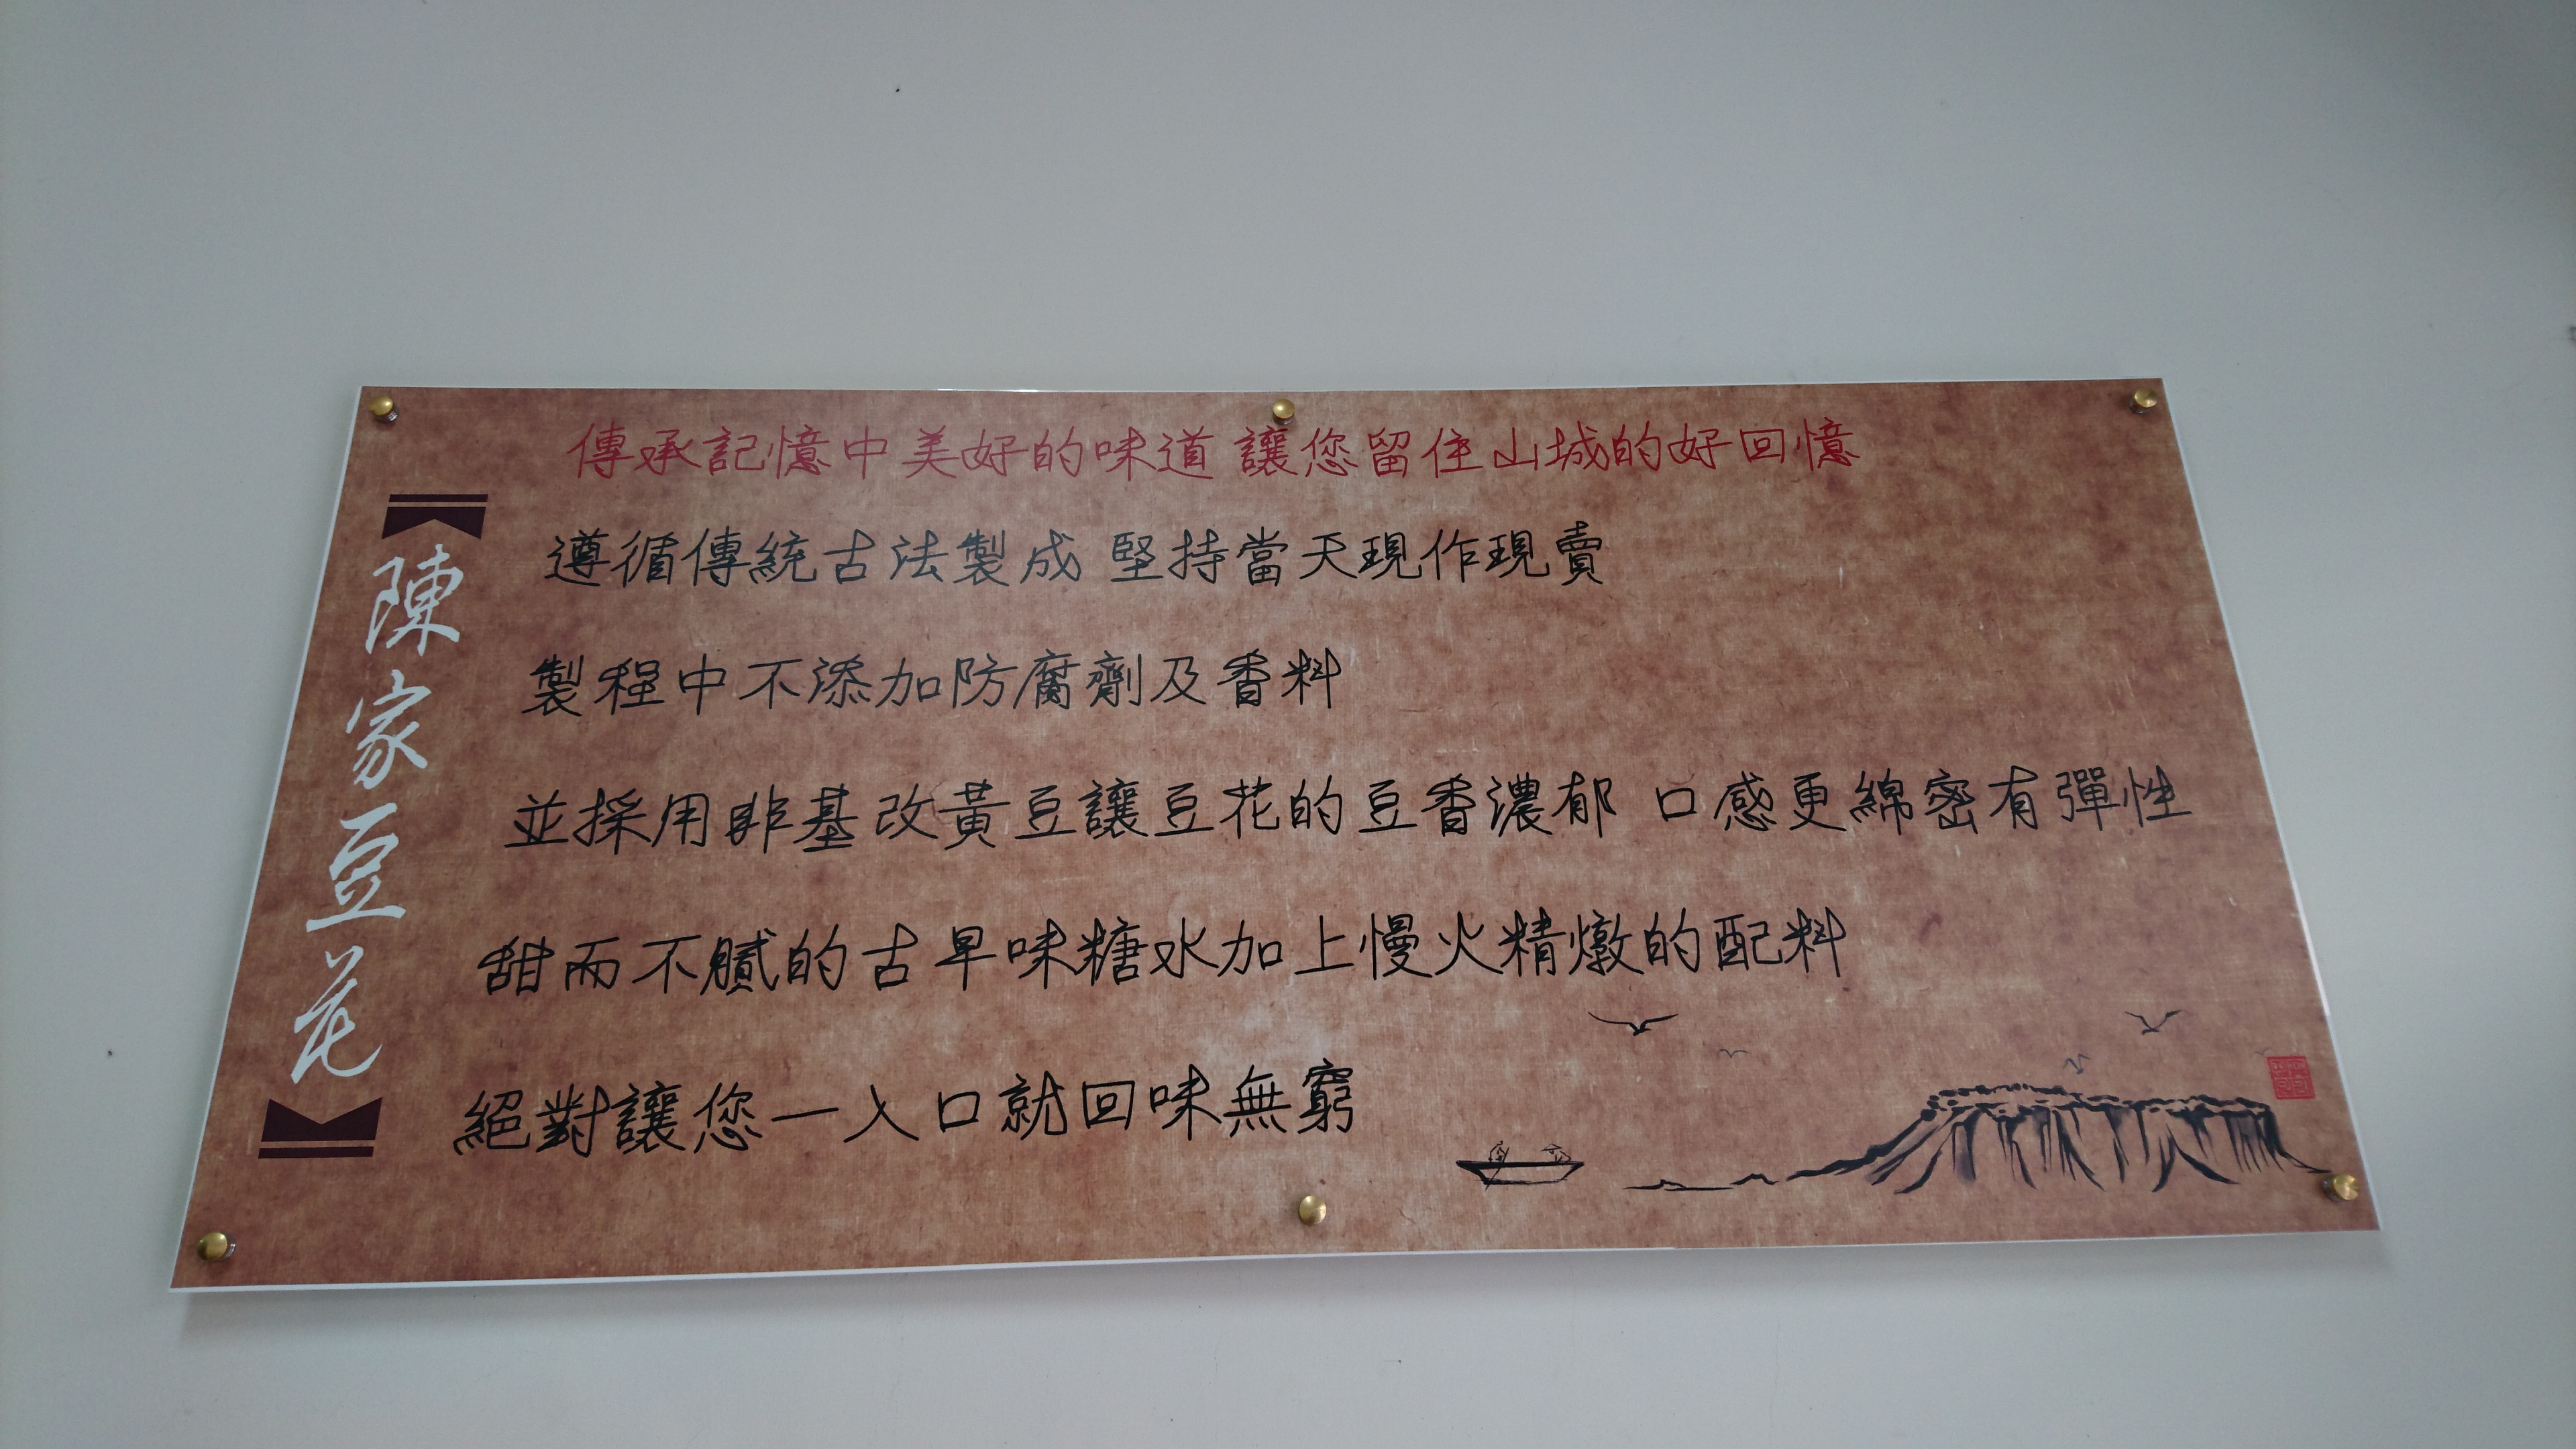 陳家豆花
傳承記憶中美好的味道 讓您留住山城的好回憶
遵循傳統古法製成 堅持當天現作現賣
製程中不添加防腐劑及香料
並採用非基改黃豆讓豆花的豆香濃郁 口感更綿密有彈性
甜而不膩的古早味糖水加上慢火精燉的配料
絕對讓您一入口就回味無窮